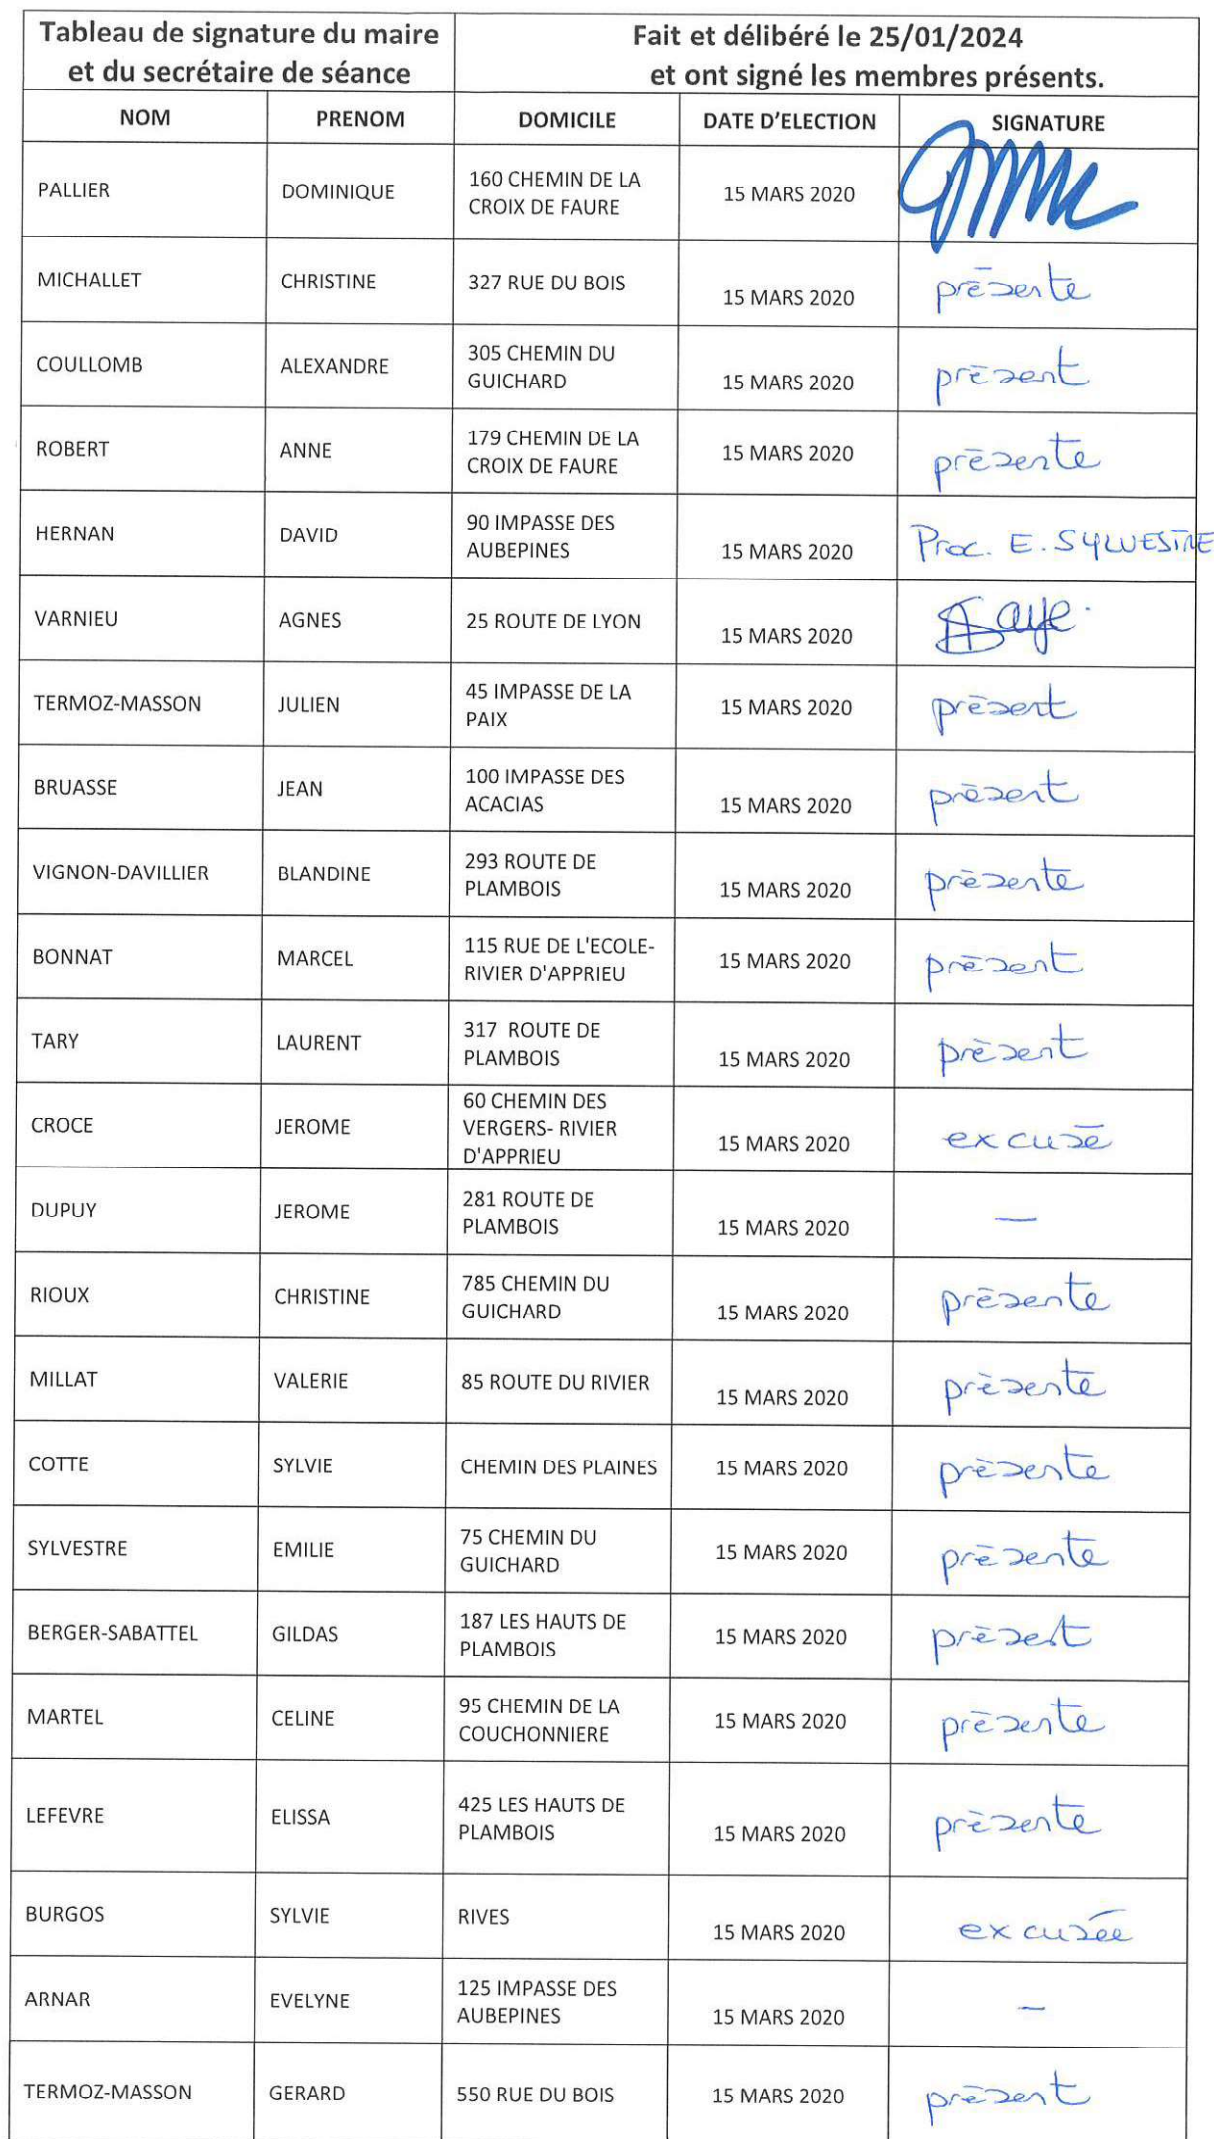 Tableau de signature du maire
et du secrétaire de séance
Fait et délibéré le 25/01/2024
et ont signé les membres présents.
NOM PRENOM DOMICILE DATE D'ELECTION SIGNATURE
PALLIER DOMINIQUE 160 CHEMIN DE LA
CROIX DE FAURE 15 MARS 2020
MICHALLET CHRISTINE 327 RUE DU BOIS 15 MARS 2020 présente
COULLOMB ALEXANDRE 305 CHEMIN DU
GUICHARD 15 MARS 2020 présent
ROBERT ANNE 179 CHEMIN DE LA
CROIX DE FAURE 15 MARS 2020 présente
HERNAN DAVID 90 IMPASSE DES
AUBEPINES 15 MARS 2020 Proc. E. SYLVESTRE
VARNIEU AGNES 25 ROUTE DE LYON 15 MARS 2020
TERMOZ-MASSON JULIEN 45 IMPASSE DE LA
PAIX 15 MARS 2020 présent
BRUASSE JEAN 100 IMPASSE DES
ACACIAS 15 MARS 2020 présent
VIGNON-DAVILLIER BLANDINE 293 ROUTE DE
PLAMBOIS 15 MARS 2020 présente
BONNAT MARCEL 115 RUE DE L'ECOLE-
RIVIER D'APPRIEU 15 MARS 2020 présent
TARY LAURENT 317 ROUTE DE
PLAMBOIS 15 MARS 2020 présent
CROCE JEROME 60 CHEMIN DES
VERGERS- RIVIER
D'APPRIEU 15 MARS 2020 excusé
DUPUY JEROME 281 ROUTE DE
PLAMBOIS 15 MARS 2020 —
RIOUX CHRISTINE 785 CHEMIN DU
GUICHARD 15 MARS 2020 présente
MILLAT VALERIE 85 ROUTE DU RIVIER 15 MARS 2020 présente
COTTE SYLVIE CHEMIN DES PLAINES 15 MARS 2020 présente
SYLVESTRE EMILIE 75 CHEMIN DU
GUICHARD 15 MARS 2020 présente
BERGER-SABATTEL GILDAS 187 LES HAUTS DE
PLAMBOIS 15 MARS 2020 présent
MARTEL CELINE 95 CHEMIN DE LA
COUCHONNIERE 15 MARS 2020 présente
LEFEVRE ELISSA 425 LES HAUTS DE
PLAMBOIS 15 MARS 2020 présente
BURGOS SYLVIE RIVES 15 MARS 2020 excusée
ARNAR EVELYNE 125 IMPASSE DES
AUBEPINES 15 MARS 2020 —
TERMOZ-MASSON GERARD 550 RUE DU BOIS 15 MARS 2020 présent